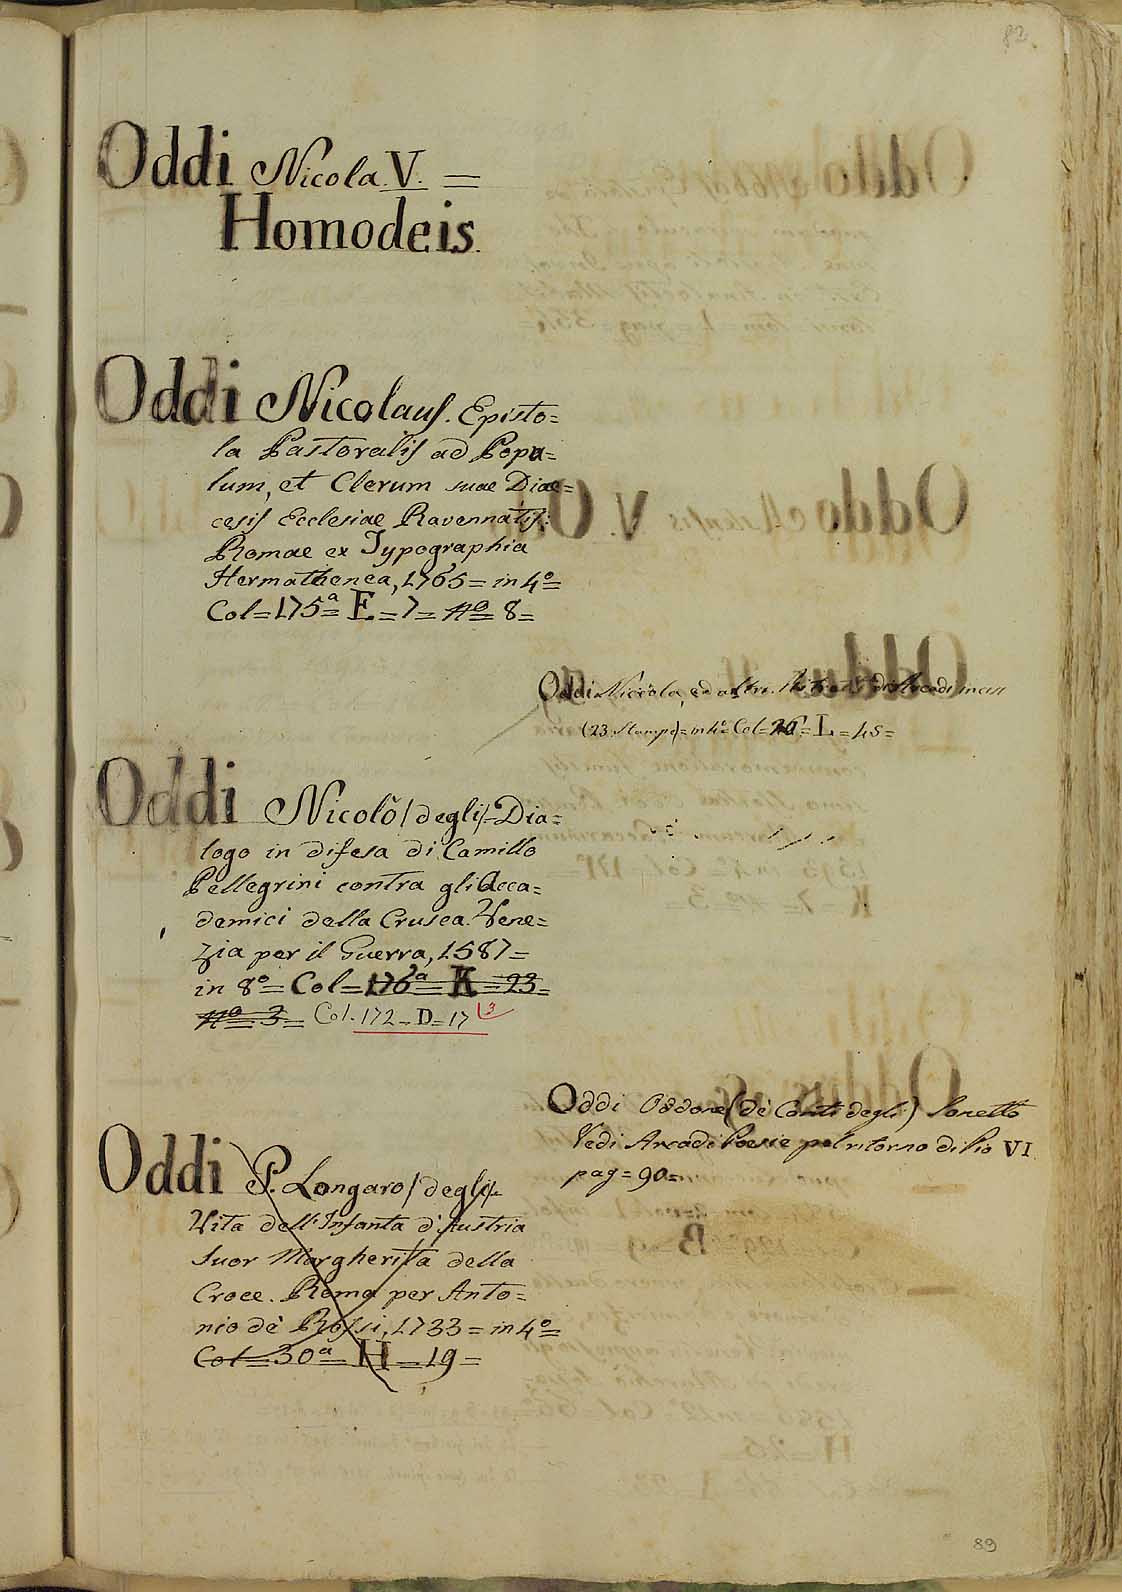 82
Oddi Nicola. V. =
Homodeis.
Oddi Nicolaus. Episto=
la Pastoralis ad Popu=
lum, et Clerum suae Diae=
cesis Ecclesiae Ravennatis:
Romae ex Typographia
Hermathenea, 1765 = in 4º =
Col = 175ª = E = 7 = nº 8 =
Oddi Niccola, ed altri.
(23 Stampe) = in 4º = Col = = L = 45 =
Oddi Nicolò / degli / = Dia=
logo in difesa di Camillo
Pellegrini contra gli Acca=
demici della Crusca. Vene=
zia per il Guerra, 1587 =
in 8º = Col = 176ª = K = 23 =
nº 3 = Col. 172 = D = 17 3
Oddi Oddone (dè Conti degli) Sonetto
Vedi Arcadi Poesie pel ritorno di Pio VI
pag = 90 =
Oddi P. Longaro / degli / =
Vita dell'Infanta d'Austria
Suor Margherita della
Croce. Roma per Anto=
nio dè Rossi, 1733 = in 4º =
Col = 30ª = H = 19 =
89